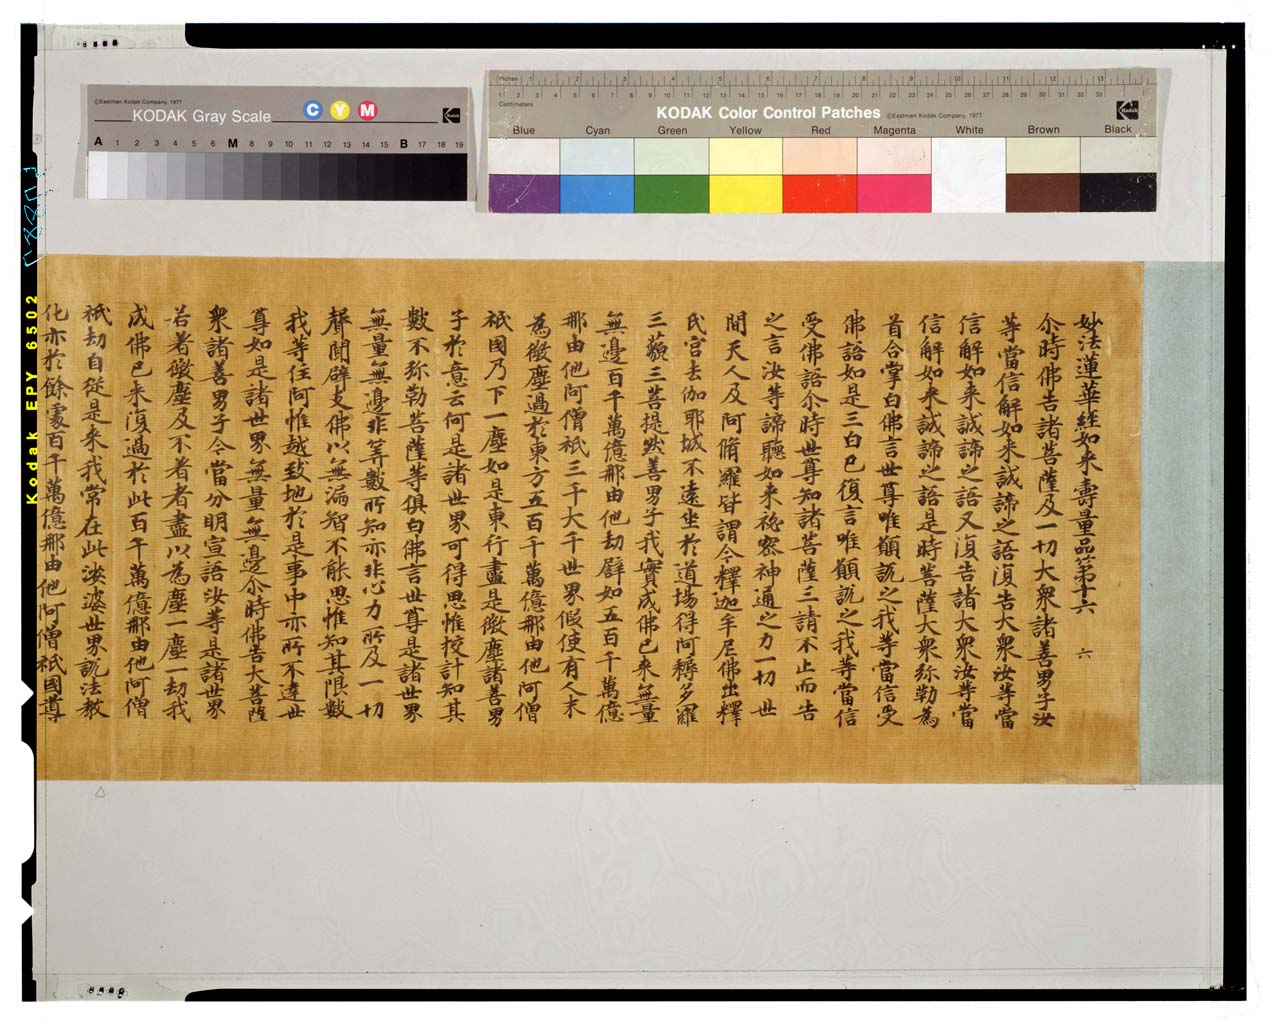 ©Eastman Kodak Company, 1977
KODAK Gray Scale
C Y M
Kodak
A 1 2 3 4 5 6 M 8 9 10 11 12 13 14 15 B 17 18 19
Inches 1 2 3 4 5 6 7 8 9 10 11 12 13
1 2 3 4 5 6 7 8 9 10 11 12 13 14 15 16 17 18 19 20 21 22 23 24 25 26 27 28 29 30 31 32 33
Centimeters
KODAK Color Control Patches ©Eastman Kodak Company, 1977
Kodak
Blue Cyan Green Yellow Red Magenta White Brown Black
Kodak EPY 6502
妙法蓮華經如来壽量品第十六 六
尒時佛告諸菩薩及一切大衆諸善男子汝
等當信解如来誠諦之語復告大衆汝等當
信解如来誠諦之語又復告諸大衆汝等當
信解如来誠諦之語是時菩薩大衆弥勒為
首合掌白佛言世尊唯願說之我等當信受
佛語如是三白已復言唯願說之我等當信
受佛語尒時世尊知諸菩薩三請不止而告
之言汝等諦聽如来祕密神通之力一切世
間天人及阿脩羅皆謂今釋迦牟尼佛出釋
氏宮去伽耶城不遠坐於道場得阿耨多羅
三藐三菩提然善男子我實成佛已来無量
無邊百千萬億那由他劫譬如五百千萬億
那由他阿僧祇三千大千世界假使有人末
為微塵過於東方五百千萬億那由他阿僧
祇國乃下一塵如是東行盡是微塵諸善男
子於意云何是諸世界可得思惟挍計知其
數不弥勒菩薩等俱白佛言世尊是諸世界
無量無邊非筭數所知亦非心力所及一切
聲聞辟支佛以無漏智不能思惟知其限數
我等住阿惟越致地於是事中亦所不達世
尊如是諸世界無量無邊尒時佛告大菩薩
衆諸善男子今當分明宣語汝等是諸世界
若著微塵及不著者盡以為塵一塵一劫我
成佛已来復過於此百千萬億那由他阿僧
祇劫自從是来我常在此娑婆世界說法教
化亦於餘處百千萬億那由他阿僧祇國導